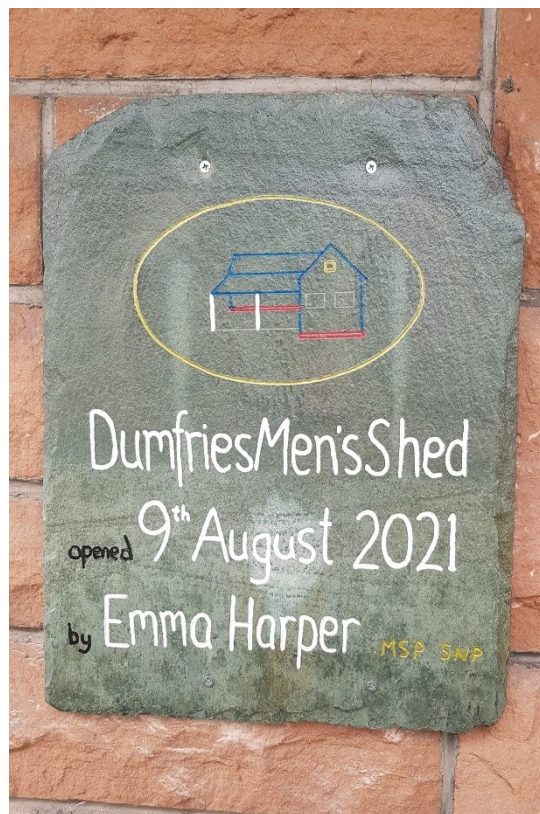 Dumfries Men's Shed
opened 9th August 2021
by Emma Harper MSP SNP